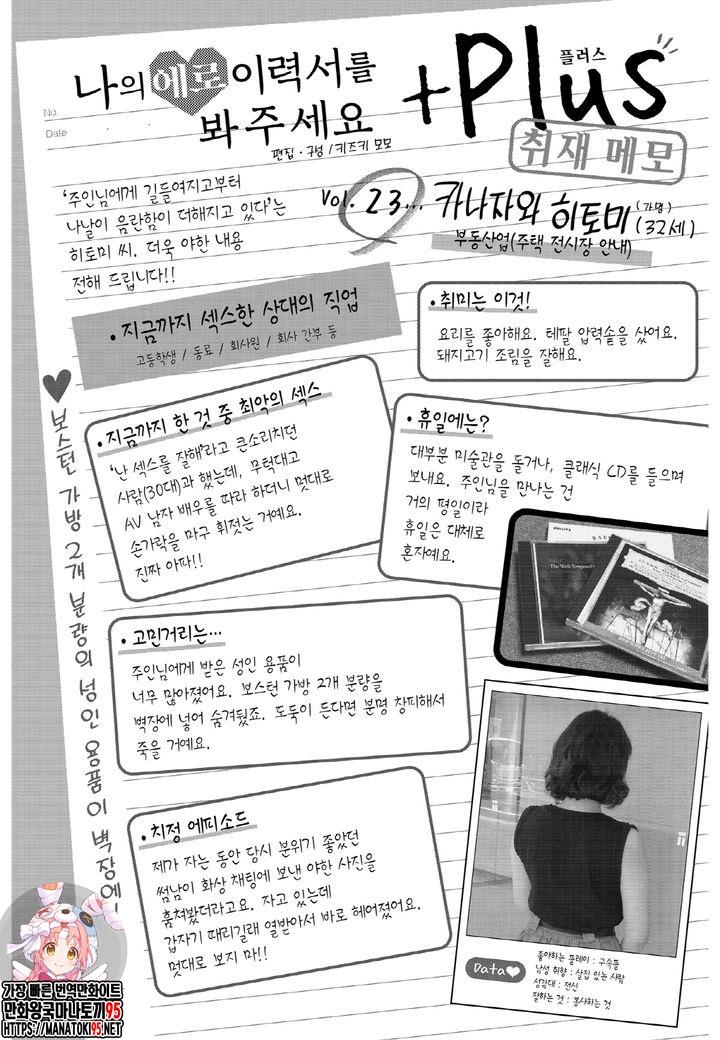 No.
Date
나의 에로 이력서를
봐 주세요
+Plus
플러스
편집·구성 / 키즈키 모모
취재 메모
'주인님에게 길들여지고부터
나날이 음란함이 더해지고 있다'는
히토미 씨. 더욱 야한 내용
전해 드립니다!!
Vol. 23... 카나자와 히토미 (가명)
(32세)
부동산업(주택 전시장 안내)
• 지금까지 섹스한 상대의 직업
고등학생 / 동료 / 회사원 / 회사 간부 등
• 취미는 이것!
요리를 좋아해요. 테팔 압력솥을 샀어요.
돼지고기 조림을 잘해요.
♥보스턴 가방 2개 분량의 성인 용품이 벽장에-
• 지금까지 한 것 중 최악의 섹스
'난 섹스를 잘해'라고 큰소리치던
사람(30대)과 했는데, 무턱대고
AV 남자 배우를 따라 하더니 멋대로
손가락을 마구 휘젓는 거예요.
진짜 아파!!
• 휴일에는?
대부분 미술관을 돌거나, 클래식 CD를 들으며
보내요. 주인님을 만나는 건
거의 평일이라
휴일은 대체로
혼자예요.
• 고민거리는…
주인님에게 받은 성인 용품이
너무 많아졌어요. 보스턴 가방 2개 분량을
벽장에 넣어 숨겨뒀죠. 도둑이 든다면 분명 창피해서
죽을 거예요.
• 치정 에피소드
제가 자는 동안 당시 분위기 좋았던
썸남이 화상 채팅에 보낸 야한 사진을
훔쳐봤더라고요. 자고 있는데
갑자기 때리길래 열받아서 바로 헤어졌어요.
멋대로 보지 마!!
Data♥
좋아하는 플레이 : 구속플
남성 취향 : 살집 있는 사람
성감대 : 전신
잘하는 것 : 봉사하는 것
가장 빠른 번역만화이트
만화왕국마나토끼95
HTTPS://MANATOKI95.NET